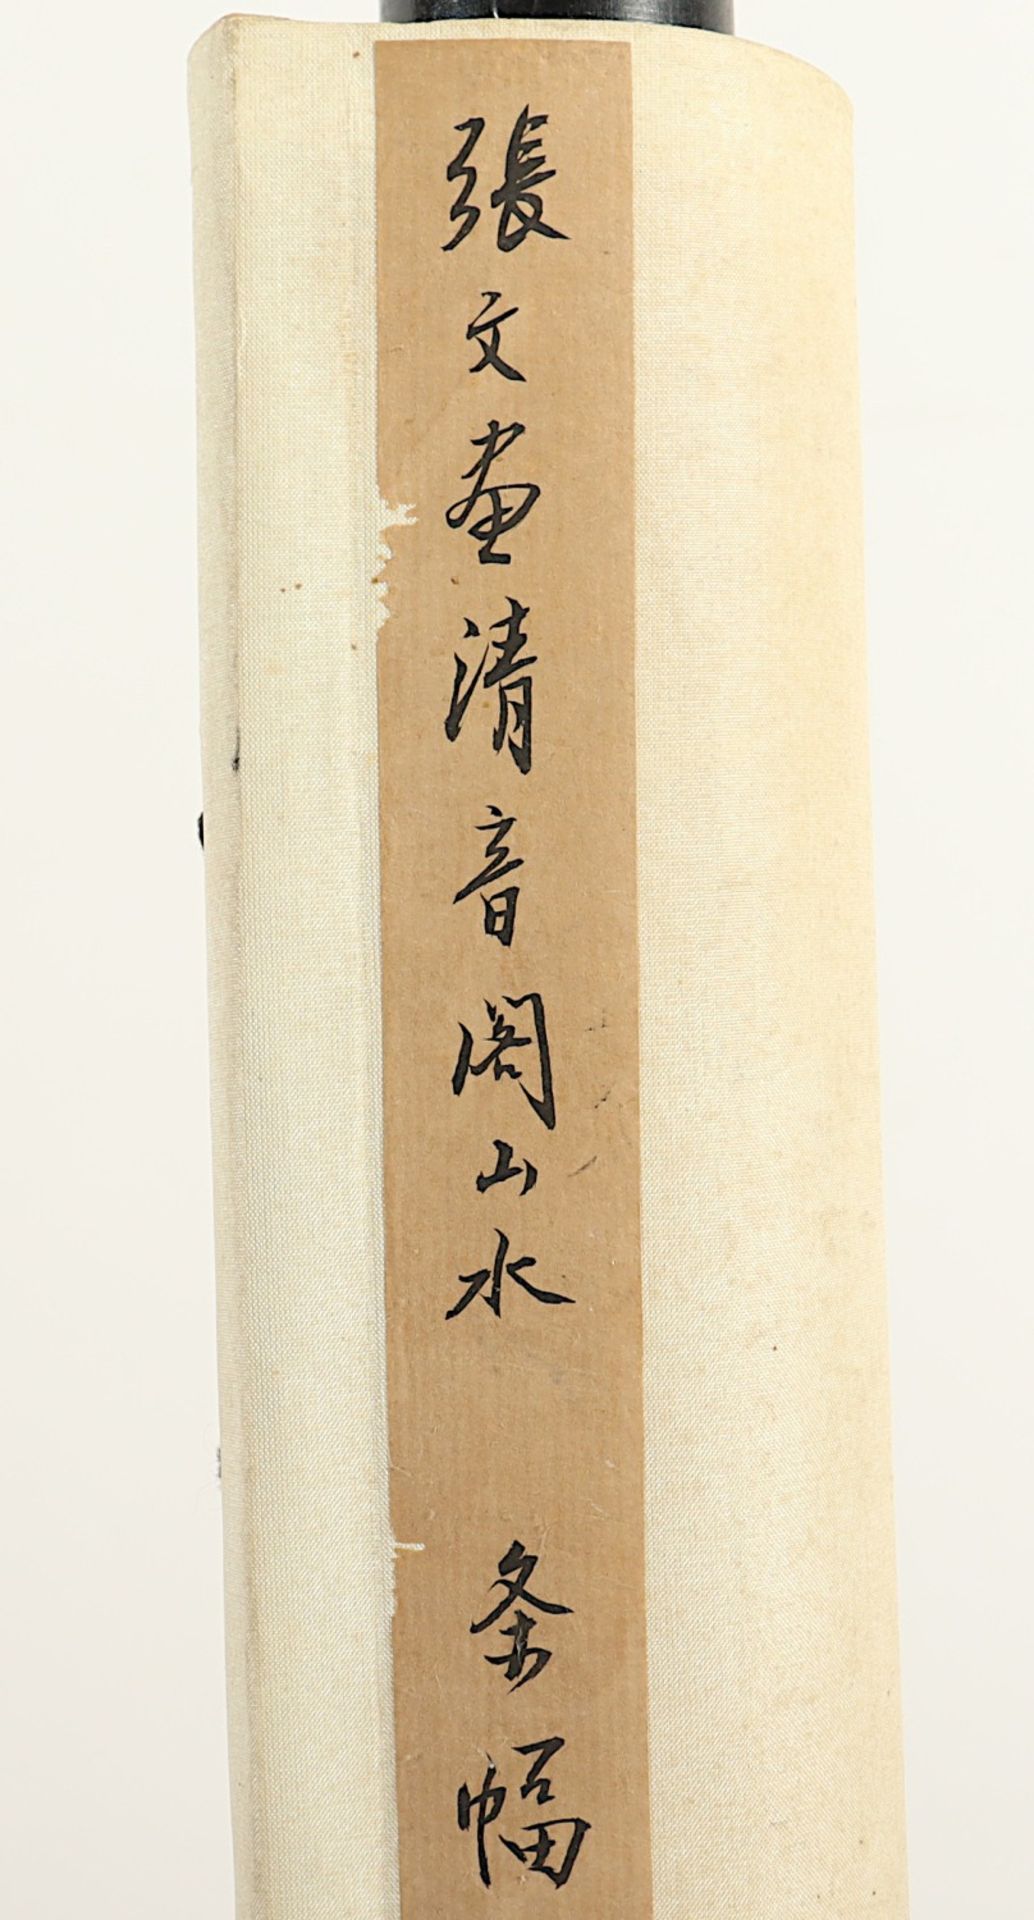 張文画清音阁山水 条幅